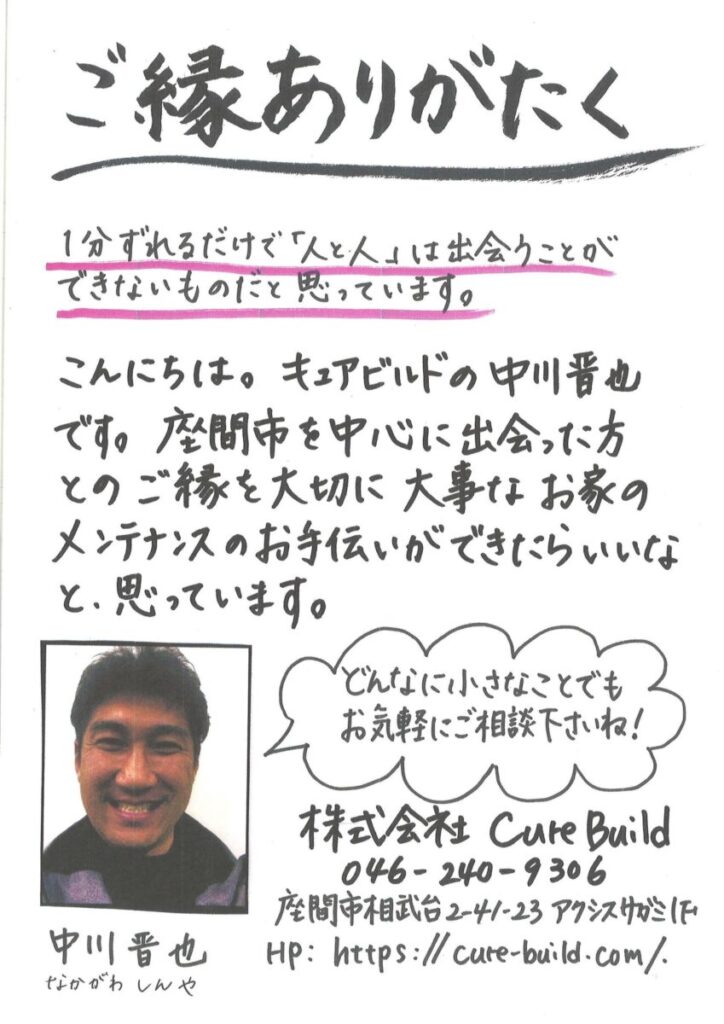 ご縁ありがたく
1分ずれるだけで「人と人」は出会うことが
できないものだと思っています。
こんにちは。キュアビルドの中川晋也
です。座間市を中心に出会った方
とのご縁を大切に大事なお家の
メンテナンスのお手伝いができたらいいな
と、思っています。
どんなに小さなことでも
お気軽にご相談下さいね!
株式会社 Cure Build
046-240-9306
座間市相武台2-41-23 アクシスサガミ1F
HP: https://cure-build.com/.
中川晋也
なかがわ しんや